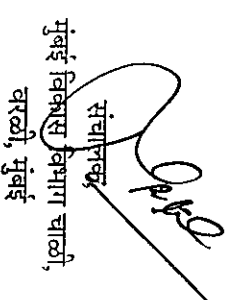 संचालक,
मुंबई विकास विभाग चाळी,
वरळी, मुंबई